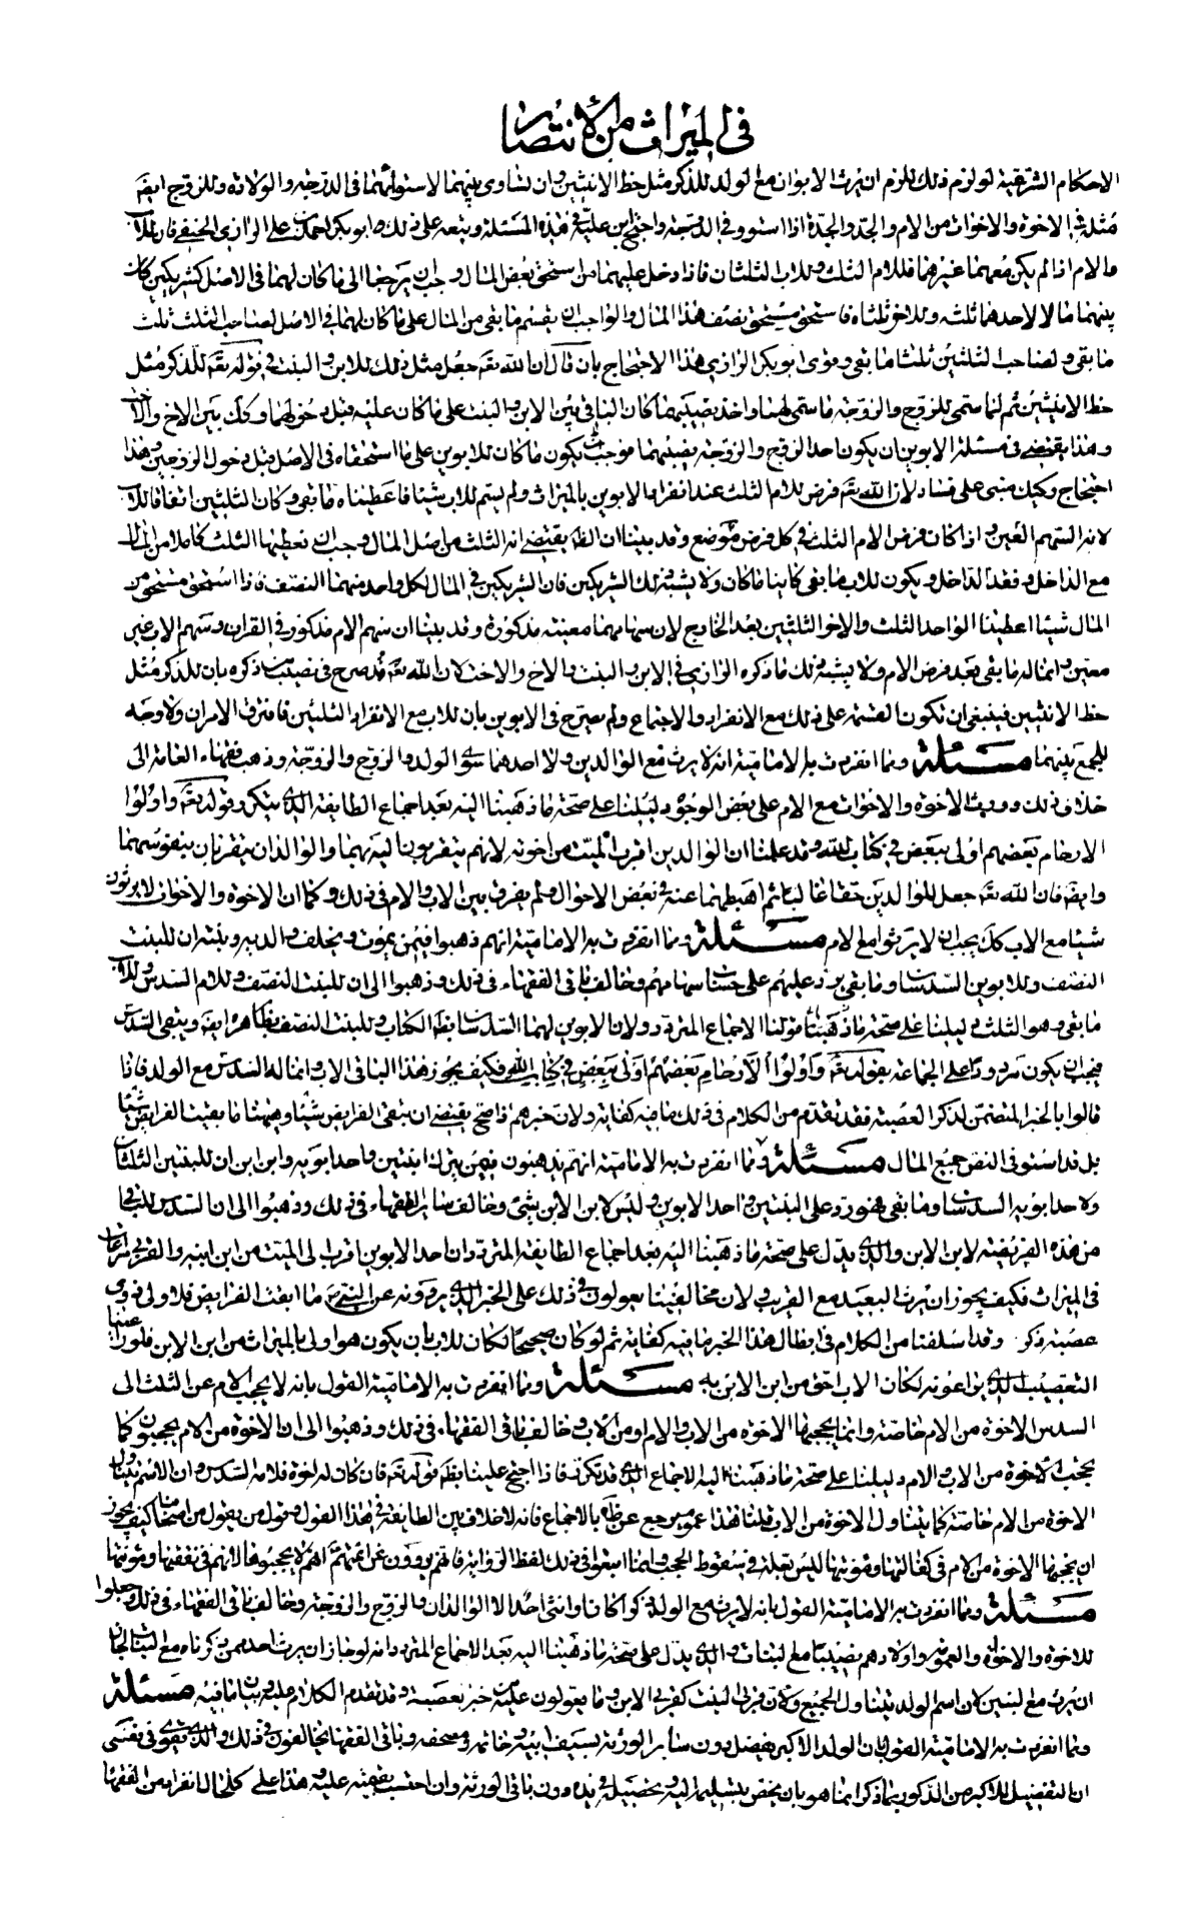 في الميراث من الانتصار
الاحكام الشرعية لو لزم ذلك للزم ان يرث الابوان مع الولد للذكر مثل حظ الانثيين وان تساوى بينهما لاستوائهما في الدرجة والولادة وللزوج ايضا
مثله في الاخوة والاخوات من الام والجد والجدة اذا استووا في الدرجة واحتج ابن علية في هذه المسئلة وتبعه على ذلك ابو بكر احمد بن علي الرازي الحنفي فان للاب
والام اذا لم يكن معهما غيرهما فللام الثلث وللاب الثلثان فاذا دخل عليهما من استحق بعض المال وجب ان يرجعا الى ما كان لهما في الاصل كشريكين كان
بينهما مال لاحدهما ثلثه وللاخر ثلثاه فاستحق مستحق نصف هذا المال والواجب ان يقسم ما بقي من المال على ما كان لهما في الاصل لصاحب الثلث ثلث
ما بقي ولصاحب الثلثين ثلثا ما بقي وقوى ابو بكر الرازي هذا الاحتجاج بان قال ان الله تعه جعل مثل ذلك للابن والبنت في قوله تعه للذكر مثل
حظ الانثيين ثم لما سمى للزوج والزوجة ما سمى لهما واخذ نصيبهما كان الباقي بين الابن والبنت على ما كان عليه قبل دخولهما وكك بين الاخ والاخت
وهذا يقتضي في مسئلة الابوين ان يكون اخذ الزوج والزوجة نصيبهما موجب ان يكون ما كان للابوين على ما استحقاه في الاصل قبل دخول الزوجين وهذا
احتجاج ركيك مبني على فساد لان الله تعه فرض للام الثلث عند انفراد الابوين بالميراث ولم يسم للاب شيئا فاعطيناه ما بقي وكان الثلثين اتفاقا لا
لانه السهم المعين واذا كان فرض الام الثلث في كل فرض موضع وقد بينا ان الظ يقتضي انه الثلث من اصل المال وجب ان نعطيها الثلث كاملا من المال
مع الداخل وفقد الداخل ويكون للاب ما بقي كائنا ما كان ولا يشبه ذلك الشريكين فان الشريكين في المال لكل واحد منهما النصف فاذا استحق مستحق من
المال شيئا اعطينا الواحد الثلث والاخر الثلثين بعد الخارج لان سهامهما معينة مذكورة وقد بينا ان سهم الام مذكور في القران وسهم الاب غير
معين وانما له ما بقي بعد فرض الام ولا يشبه ذلك ما ذكره الرازي في الابن والبنت والاخ والاخت لان الله تعه قد صرح في نصيب من ذكره بان للذكر مثل
حظ الانثيين فينبغي ان تكون القسمة على ذلك مع الانفراد والاجتماع ولم يصرح في الابوين بان للاب مع الانفراد الثلثين فافترق الامران ولا وجه
للجمع بينهما مسئلة ومما انفردت به الامامية انه لا يرث مع الوالدين ولا احدهما سوى الولد والزوج والزوجة وذهب فقهاء العامة الى
خلاف ذلك وورثوا الاخوة والاخوات مع الام على بعض الوجوه دليلنا على صحة ما ذهبنا اليه بعد اجماع الطايفة الذي يتكرر قوله تعه واولوا
الارحام بعضهم اولى ببعض في كتاب الله وقد علمنا ان الوالدين اقرب الى الميت من اخوته لانهم يتقربون اليه بهما والوالدان يتقربان بنفوسهما
وايضا فان الله تعه جعل للوالدين حقا عاليا ثم اهبطهما عنه في بعض الاحوال ولم يفرق بين الاب والام في ذلك وكما ان الاخوة والاخوات لا يرثون
شيئا مع الاب كك يجب ان لا يرثوا مع الام مسئلة ومما انفردت به الامامية انهم ذهبوا فيمن يموت ويخلف والديه وبنته ان للبنت
النصف وللابوين السدسان وما بقي يرد عليهم على حساب سهامهم وخالف باقي الفقهاء في ذلك وذهبوا الى ان للبنت النصف وللام السدس وللاب
ما بقي وهو الثلث دليلنا على صحة ما ذهبنا اليه قولنا الاجماع المتردد ولان الابوين لهما السدسان بظ الكتاب وللبنت النصف بظاهره ايضا ويبقى السدس
فيجب ان يكون مردودا على الجماعة بقوله تعه واولوا الارحام بعضهم اولى ببعض في كتاب الله فكيف يجوز هذا الباقي الاب وانما له السدس مع الولد فاذا
قالوا بالخبر المتضمن لذكر العصبة فقد تقدم من الكلام في ذلك ما فيه كفاية ولان خبرهم اذا صح يقتضي ان تبقي الفرايض شيئا وههنا ما بقيت الفرايض شيئا
بل قد استوفى النص جميع المال مسئلة ومما انفردت به الامامية انهم يذهبون فيمن يترك ابنتين واحد ابويه وابن ابن ان للبنتين الثلثان
ولاحد ابويه السدس وما بقي فهو رد على البنتين واحد الابوين وليس لابن الابن شيئ وخالف ساير الفقهاء في ذلك وذهبوا الى ان السدس الباقي
من هذه الفريضة لابن الابن والذي يدل على صحة ما ذهبنا اليه بعد اجماع الطايفة المتردد ان احد الابوين اقرب الى الميت من ابن ابنه والقربى مراعاة
في الميراث فكيف يجوز ان يرث البعيد مع القريب ولان مخالفينا يعولون في ذلك على الخبر الذي يروونه عن النبي ص ما ابقت الفرايض فلاولى ذوي
عصبة ذكر وقد اسلفنا من الكلام في ابطال هذا الخبر ما فيه كفاية ثم لو كان صحيحا لكان للاب بان يكون هو اولى بالميراث من ابن الابن فلو راعينا
التعصيب الذي يراعونه لكان الاب احق من ابن الابن به مسئلة ومما انفردت به الامامية القول بانه لا يحجب الام عن الثلث الى
السدس الاخوة من الام خاصة وانما يحجبها الاخوة من الاب والام ومن الاب وخالف باقي الفقهاء في ذلك وذهبوا الى ان الاخوة من الام يحجبون كما
يحجب الاخوة من الاب والام دليلنا على صحة ما ذهبنا اليه الاجماع الذي قد تكرر فاذا احتج علينا بظ قوله تعه فان كان له اخوة فلامه السدس وان الاسم يتناول
الاخوة من الام خاصة كما يتناول الاخوة من الاب قلنا هذا عموم نرجع عن ظاهره بالاجماع فانه لا خلاف بين الطايفة في هذا القول وقول من يقول من اصحابنا كيف يجوز
ان يحجبها الاخوة من الام في كفالتها ومؤنتها ليس بعلة في سقوط الحجب وانما اتبعوا في ذلك لفظ الرواية فانهم يروون عن ائمتهم انهم لا يحجبونها لانهم في نفقتها ومؤنتها
مسئلة ومما انفردت به الامامية القول بانه لا يرث مع الولد ذكرا كان او انثى احد الا الوالدان والزوج والزوجة وخالف باقي الفقهاء في ذلك وجعلوا
للاخوة والاخوات والعمومة واولادهم نصيبا مع البنات والذي يدل على صحة ما ذهبنا اليه بعد الاجماع المتردد انه لو جاز ان يرث احد ممن ذكرناه مع البنات لجاز
ان يرث مع البنين لان اسم الولد يتناول الجميع ولان قربى البنت كقربى الابن وما يعولون عليه من خبر العصبة قد تقدم الكلام عليه وبيان ما فيه مسئلة
ومما انفردت به الامامية القول بان الولد الاكبر يفضل دون ساير الورثة بسيف ابيه وخاتمه ومصحفه وباقي الفقهاء يخالفون في ذلك والذي يقوى في نفسي
ان التفضيل للاكبر من الذكور بما ذكر انما هو بان يخص بتسليمه اليه وتحصيله في يده دون باقي الورثة وان احتسب بقيمته عليه وهذا على كل حال انفراد من الفقهاء